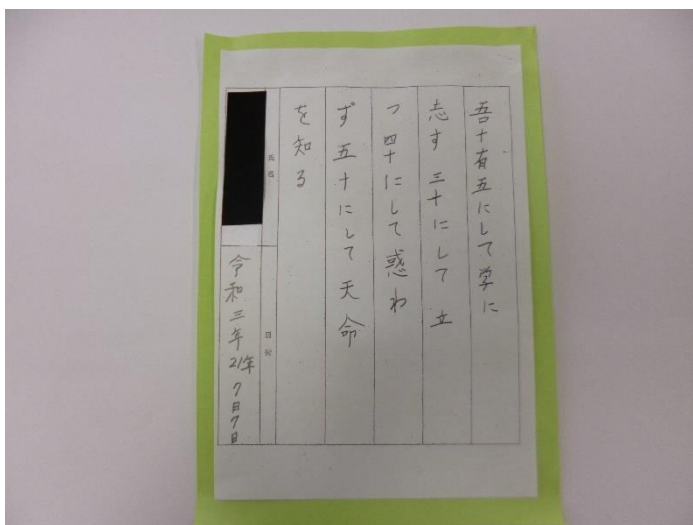 吾十有五にして学に
志す 三十にして 立
つ 四十にして 惑わ
ず 五十にして 天命
を知る
氏名
日付
令和三年21年7月7日